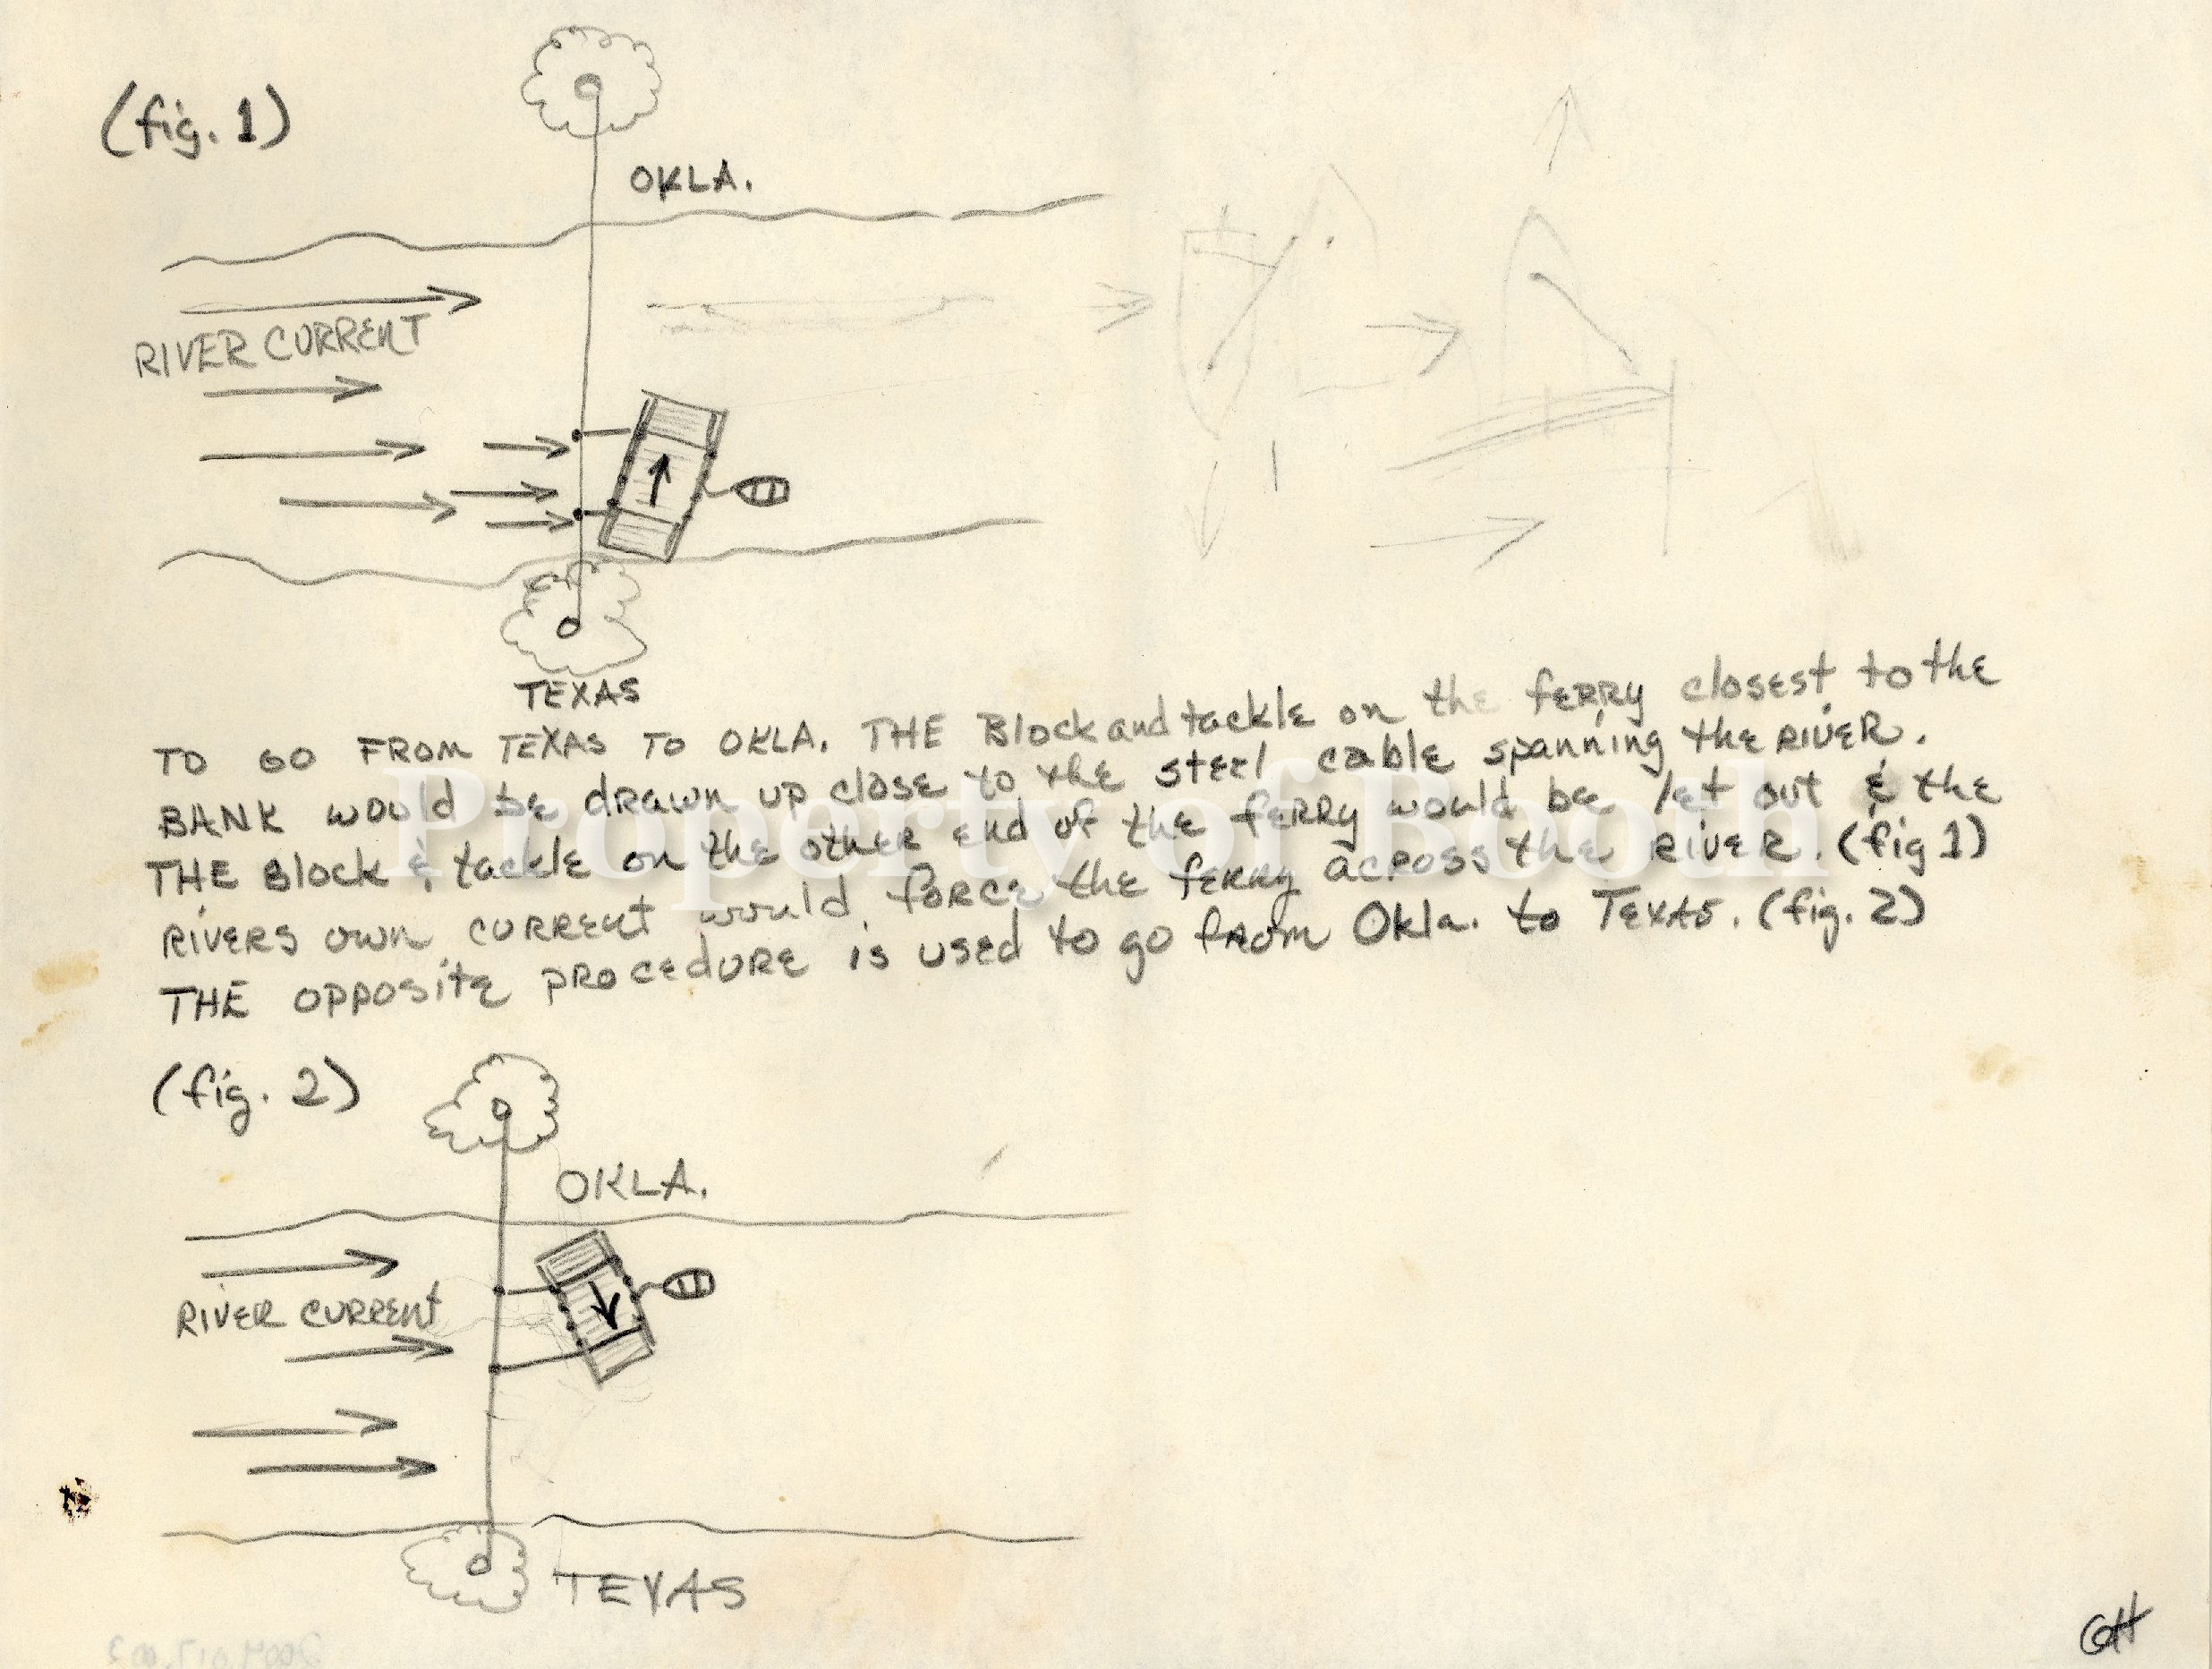 (fig. 1)
OKLA.
RIVER CURRENT
TEXAS
TO GO FROM TEXAS TO OKLA. THE Block and tackle on the ferry closest to the
BANK would be drawn up close to the steel cable spanning the RIVER.
THE Block & tackle on the other end of the ferry would be let out & the
RIVERS own current would force the ferry across the RIVER. (fig 1)
THE opposite procedure is used to go from Okla. to Texas. (fig. 2)
Property of Booth
(fig. 2)
OKLA.
RIVER CURRENT
TEXAS
GH